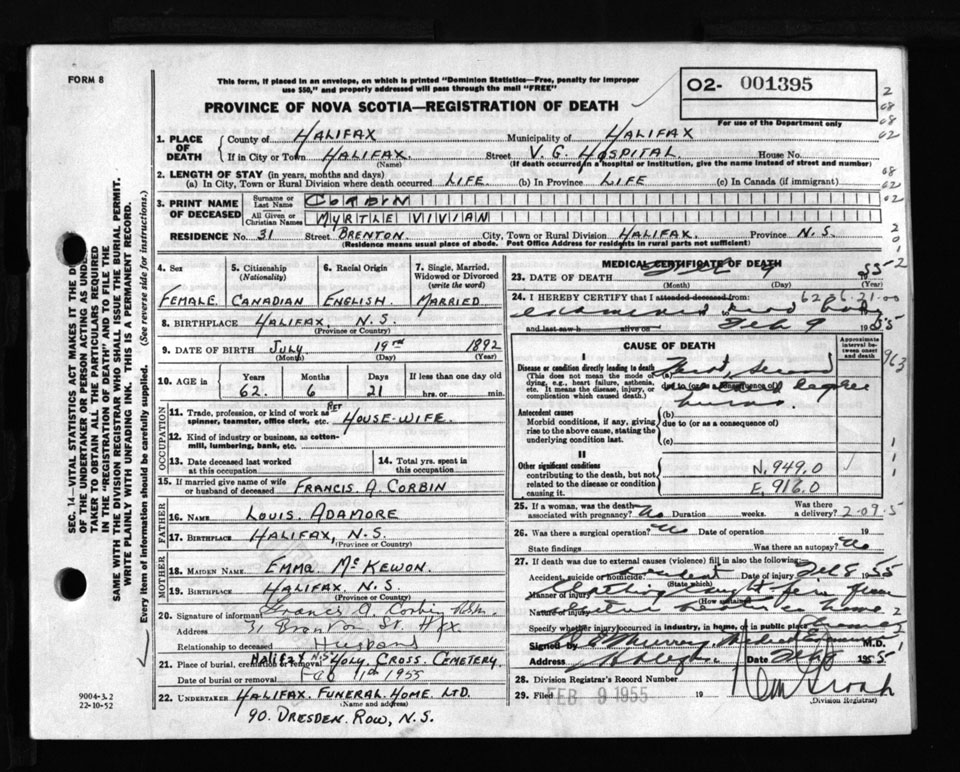 FORM 8
This form, if placed in an envelope, on which is printed "Dominion Statistics—Free, penalty for improper
use $50," and properly addressed will pass through the mail "FREE"
O2- 001395
For use of the Department only
PROVINCE OF NOVA SCOTIA—REGISTRATION OF DEATH
1. PLACE OF DEATH
County of HALIFAX Municipality of HALIFAX
If in City or Town HALIFAX. Street V. G. HOSPITAL. House No.
(Name) (If death occurred in a hospital or institution, give the name instead of street and number)
2. LENGTH OF STAY (in years, months and days)
(a) In City, Town or Rural Division where death occurred LIFE. (b) In Province LIFE (c) In Canada (if immigrant)
3. PRINT NAME OF DECEASED
Surname or Last Name CORBIN
All Given or Christian Names MYRTLE VIVIAN
RESIDENCE No. 31 Street BRENTON. City, Town or Rural Division HALIFAX. Province N.S.
(Residence means usual place of abode. Post Office Address for residents in rural parts not sufficient)
4. Sex
FEMALE
5. Citizenship (Nationality)
CANADIAN
6. Racial Origin
ENGLISH.
7. Single, Married, Widowed or Divorced (write the word)
MARRIED
8. BIRTHPLACE HALIFAX, N.S.
(Province or Country)
9. DATE OF BIRTH JULY 19 1892
(Month) (Day) (Year)
10. AGE in
Years Months Days If less than one day old
62. 6 21 hrs. or min.
OCCUPATION
11. Trade, profession, or kind of work as spinner, teamster, office clerk, etc. RET HOUSE-WIFE.
12. Kind of industry or business, as cotton-mill, lumbering, bank, etc.
13. Date deceased last worked at this occupation
14. Total yrs. spent in this occupation
15. If married give name of wife or husband of deceased FRANCIS. A. CORBIN
FATHER
16. NAME LOUIS. ADAMORE
17. BIRTHPLACE HALIFAX, N.S.
(Province or Country)
MOTHER
18. MAIDEN NAME EMMA McKEWON.
19. BIRTHPLACE HALIFAX N.S
(Province or Country)
20. Signature of informant Francis A. Corbin
Address 31 Brenton St. Hfx
Relationship to deceased Husband
21. Place of burial, cremation or removal HALIFAX N.S HOLY. CROSS. CEMETERY.
Date of burial or removal FEB 11th 1955
22. UNDERTAKER HALIFAX. FUNERAL. HOME. LTD.
(Name and address)
90. DRESDEN. ROW, N.S.
MEDICAL CERTIFICATE OF DEATH
23. DATE OF DEATH Feb 9 1955
(Month) (Day) (Year)
24. I HEREBY CERTIFY that I attended deceased from:
examined dead body
and last saw h alive on Feb 9 1955
CAUSE OF DEATH
Approximate interval between onset and death
I
Disease or condition directly leading to death
(This does not mean the mode of dying, e.g., heart failure, asthenia, etc. It means the disease, injury, or complication which caused death.)
due to (or as a consequence of)
burns.
Antecedent causes
Morbid conditions, if any, giving rise to the above cause, stating the underlying condition last.
(b)
due to (or as a consequence of)
(c)
II
Other significant conditions
contributing to the death, but not related to the disease or condition causing it.
N. 949.0
E. 916.0
25. If a woman, was the death associated with pregnancy? No Duration weeks. Was there a delivery? 2-09.5
26. Was there a surgical operation? No Date of operation
State findings Was there an autopsy? No
27. If death was due to external causes (violence) fill in also the following:
Accident, suicide or homicide Accident Date of injury Feb 8 1955
(State which)
Manner of injury
(How sustained)
Nature of injury
Specify whether injury occurred in industry, in home, or in public place
Signed by Murray Medical Examiner M.D.
Address Halifax Date 1955
28. Division Registrar's Record Number
29. Filed FEB 9 1955 19
(Division Registrar)
SEC. 14—VITAL STATISTICS ACT MAKES IT THE DU
OF THE UNDERTAKER OR PERSON ACTING AS UNDER
TAKER TO OBTAIN ALL THE PARTICULARS REQUIRED
IN THE "REGISTRATION OF DEATH" AND TO FILE THE
SAME WITH THE DIVISION REGISTRAR WHO SHALL ISSUE THE BURIAL PERMIT.
WRITE PLAINLY WITH UNFADING INK. THIS IS A PERMANENT RECORD.
Every item of information should be carefully supplied. (See reverse side for instructions.)
9004-3.2
22-10-52